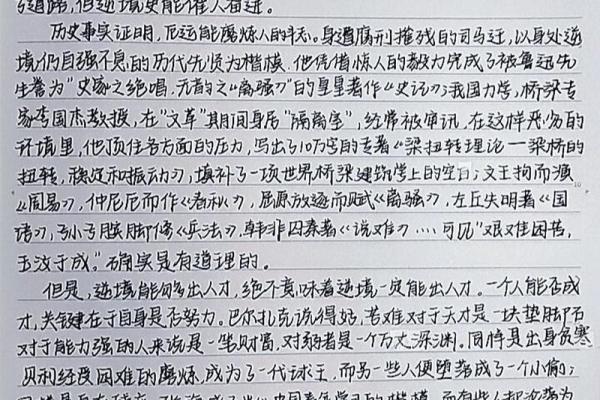 的道路,但逆境更能催人奋进。
历史事实证明,厄运能磨炼人的斗志。身遭腐刑摧残的司马迁,以身处逆
境仍自强不息的历代先贤为楷模,他凭借惊人的毅力完成了被鲁迅先
生誉为“史家之绝唱,无韵之《离骚》”的皇皇著作《史记》;我国力学,桥梁专
家李国杰教授,在“文革”其期间身居“隔离室”,经常被审讯,在这样恶劣的
环境里,他顶住各方面的压力,写出了10万字的专著《梁扭转理论—梁桥的
扭转,稳定和振动》,填补了一项世界桥梁建筑学上的空白;文王拘而演
《周易》,仲尼厄而作《春秋》,屈原放逐而赋《离骚》,左丘失明著《国
语》,孙子膑脚修《兵法》,韩非囚秦著《说难》····可见“艰难困苦,
玉汝于成。”确实是有道理的。
但是,逆境能够多出人才,绝不意味着逆境一定能出人才。一个人能否成
才,关键在于自身是否努力。巴尔扎克说得好,苦难对于天才是一块垫脚石
对于能力强的人来说是一笔财富,对弱者是一个万丈深渊。同样是出身贫寒
贝利经受困难的磨炼,成为了一代球王,而另一些人便堕落成了一个小偷;